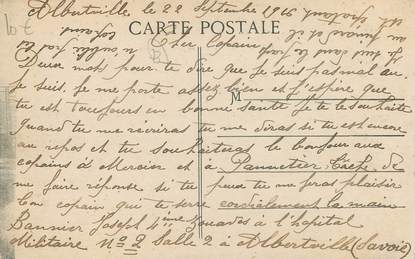 Albertville le 22 Septembre 1916
CARTE POSTALE
Cher Copain
Deux mots pour te dire que je suis pas mal ou
je suis. Je me porte assez bien et j'espère que
tu est toujours en bonne santé je te le souhaite
M
quand tu m'écriras tu me diras si tu est encore
au repos et tu souhaiteras le bonjour aux
copains à Mercier et à Pannetier tâche de
me faire réponse si tu peux tu me feras plaisir
ton copain qui te serre cordialement la main
Bannier Joseph 4ième à l'hopital
Militaire No 2 Salle 2 à Albertville (Savoie)